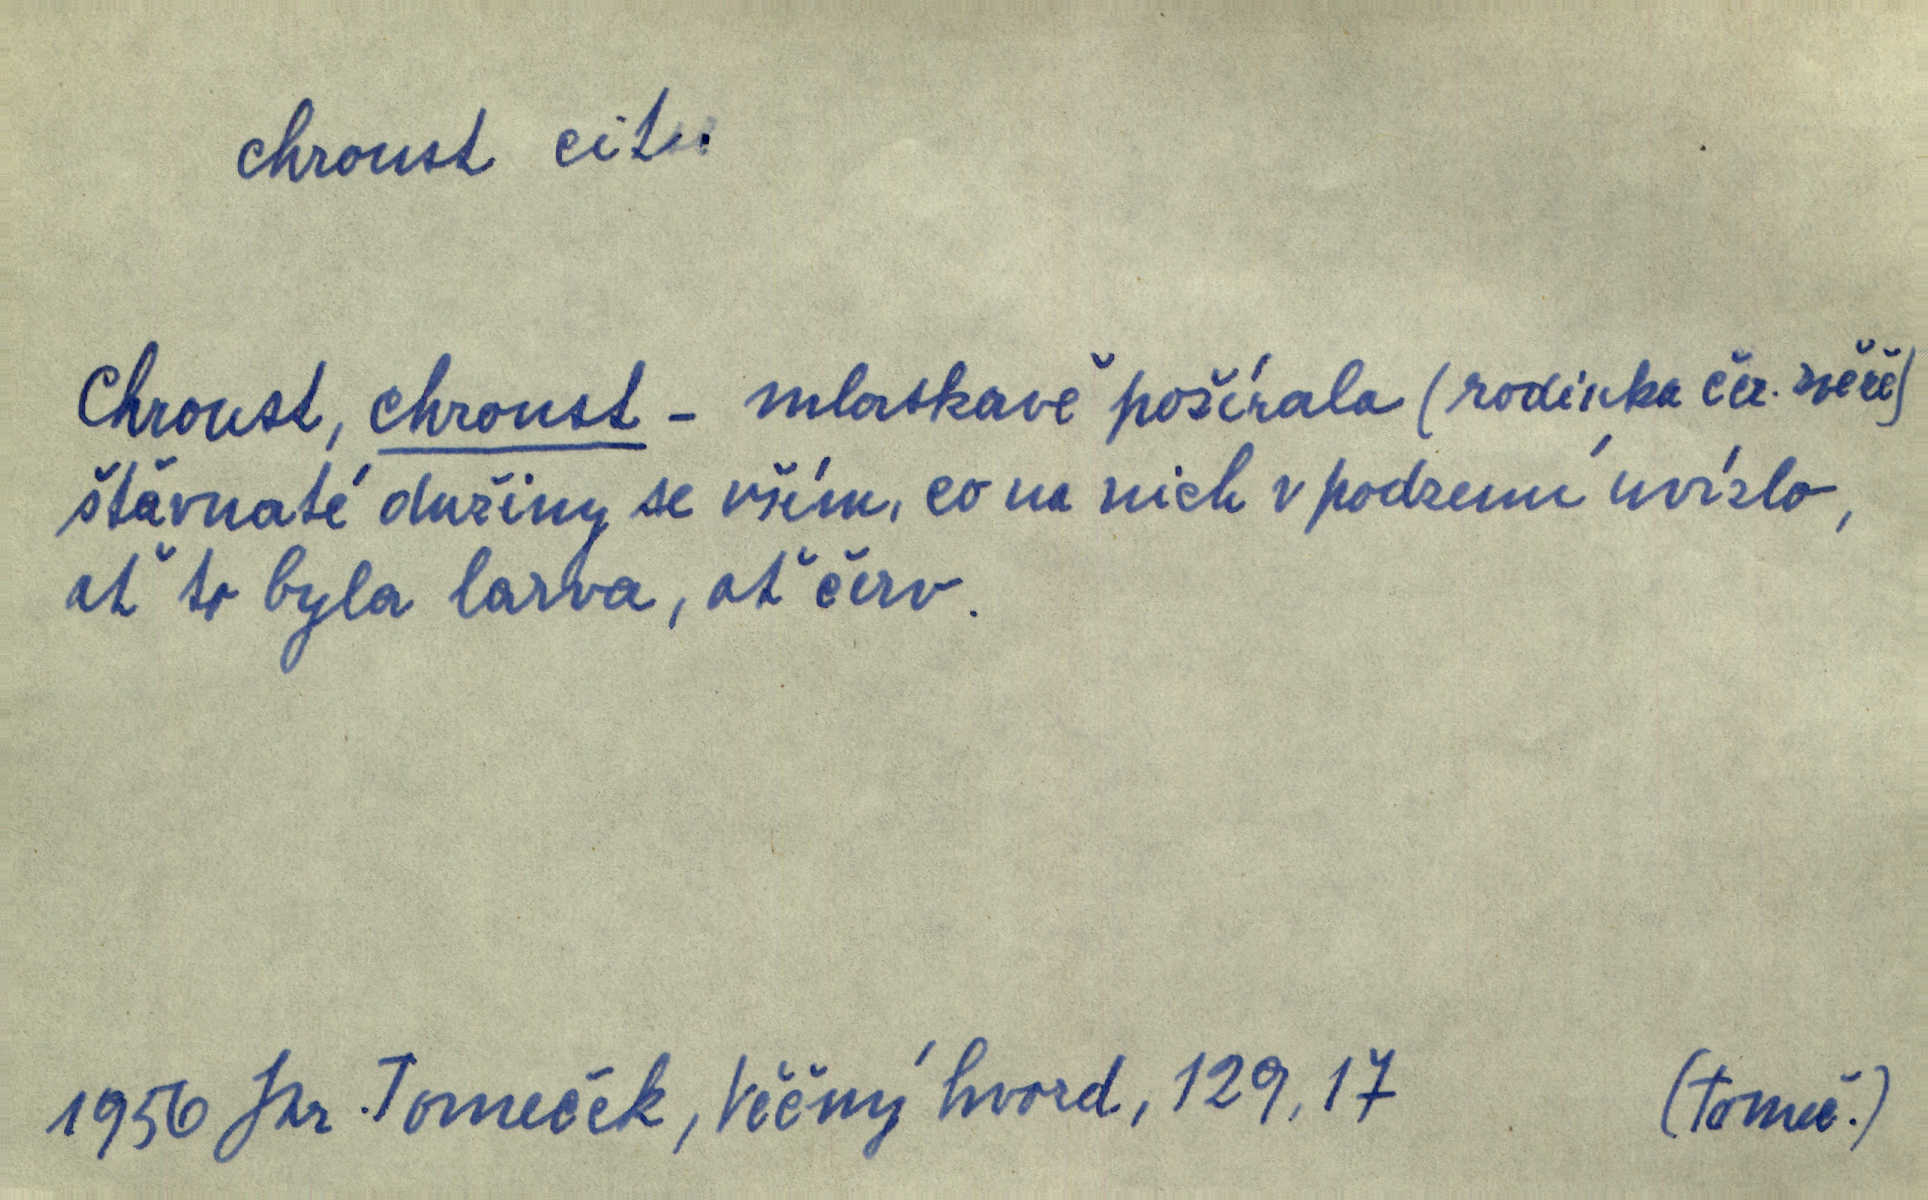 chroust cit.
Chroust, chroust – mlaskavě požírala (rodinka čer. zvěře)
šťavnaté dužiny se vším, co na nich v podzemí uvízlo,
ať to byla larva, ať červ.
1956 Jar. Tomeček, Věčný hvozd, 129, 17 (Tomeč.)